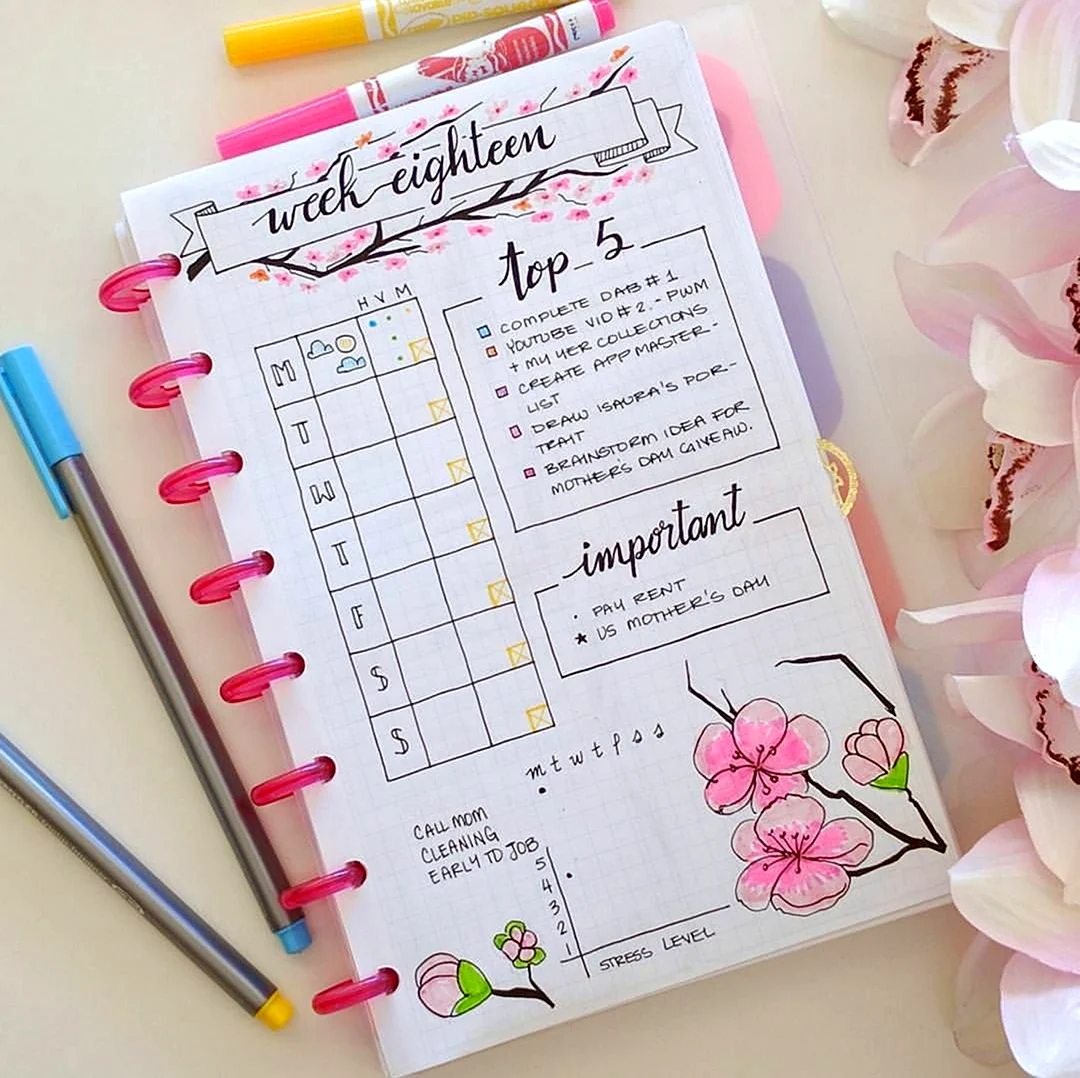 week eighteen
top 5
COMPLETE DAB # 1
YOUTUBE VID # 2. - PWM
+ MY YER COLLECTIONS
CREATE APP MASTER-
LIST
DRAW ISAURA'S POR-
TRAIT
BRAINSTORM IDEA FOR
MOTHER'S DAY GIVEAW.
H V M
M
T
W
T
F
S
S
important
· PAY RENT
★ US MOTHER'S DAY
m t w t f s s
CALL MOM
CLEANING
EARLY TO JOB
5
4
3
2
1
STRESS LEVEL